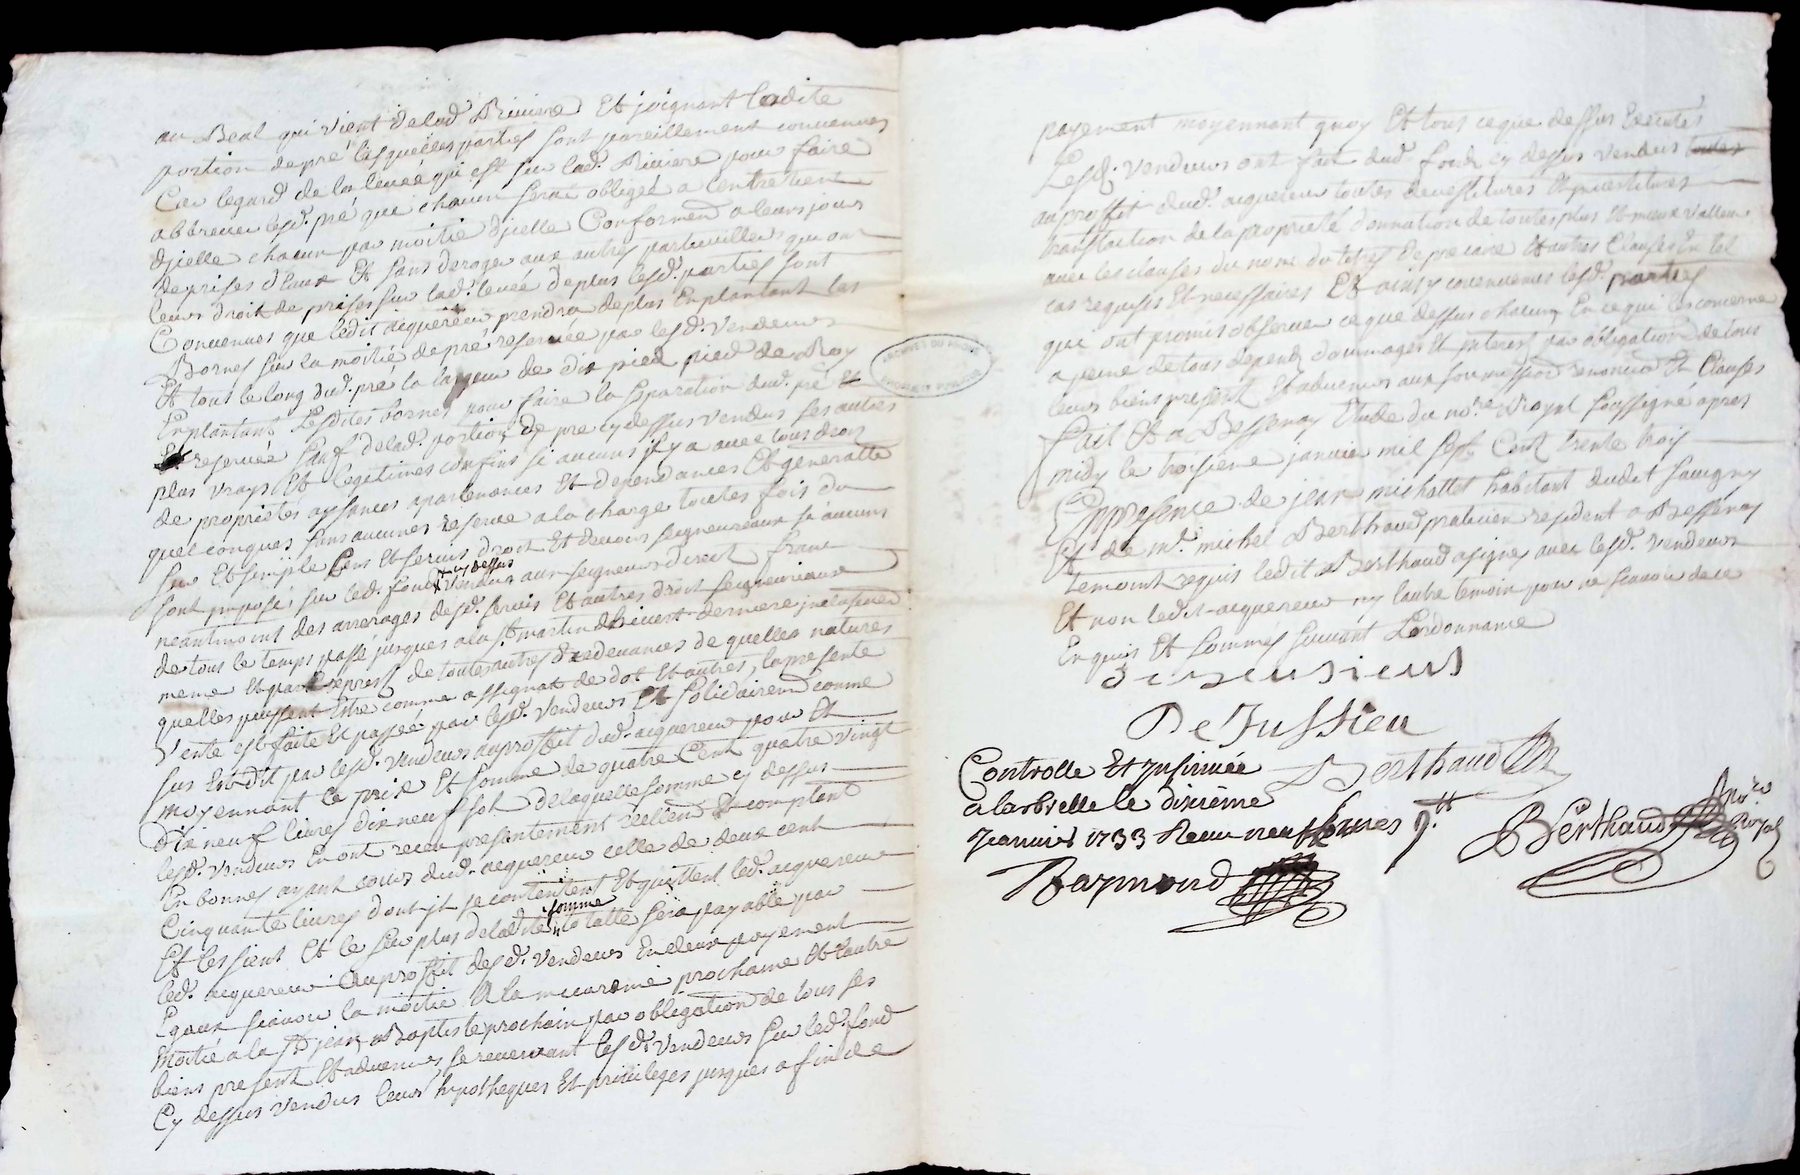 au Beal qui vient de lad. Riviere Et joignant ladite
portion de pré lesquelles parties sont pareillement convenues
qu'a legard de la levée qui est sur lad. Riviere pour faire
abbreuer lesd. pré que chacun serat obligés a l'entretient
dicelle chacun par moitié dicelle Conformem a leurs jours
de prises d'eaux Et sans deroger aux autres particuilles qui ont
leurs droit de prises sur lad. levée deplus lesd. parties sont
Convenues que ledit acquereur prendra deplus En plantant les
Bornes sur la moitié de pré reservée par lesd. vendeurs
Et tout le long dud. pré la largeur de dix pied pied de Roy
En plantant Lesdites bornes pour faire la separation dud. pré Et
reservée sauf de lad. portion de pre cy dessus vendus ses autres
plus vrays Et legitimes confins si aucuns il y a avec tous droit
de proprietes aysances apartenances Et dependances Et generalle
quelconques sans aucunes reserve a la charge toutes fois du
sur Et simple sens Et servis droit Et devoirs seigneuriaux si aucuns
sont imposé sur led. fond cy dessus vendus aux seigneurs direct franc
neantmoint des arrerages desd. servis Et autres droit seigneuriaux
de tous le temps passé jusques a la St martin dhivert derniere inclusivem
meme Et par exprest de toutes autres redevances de quelles natures
quelles puissent Etre comme assignat de dot Et autres, la presente
Vente est faite Et passée par lesd. vendeurs Et solidairem comme
sus Est dit par lesd. vendeurs auproffit dud. acquereur pour Et
moyennant le prix Et somme de quatre Cent quatre vingt
Dix neuf livres dix neuf sols de laquelle somme cy dessus
lesd. vendeurs En ont receu presentement reellem Et comptant
En bonnes ayant cours dud. acquereur celle de deux cent
Cinquante livres dont jl se contentent Et quittent led. acquereur
Et les sient Et le sur plus de ladite somme totalle sera payable par
led. acquereur Auproffit desd. vendeurs En deux payement
Egaux scavoir la moitié A la micaresme prochaine Et l'autre
moitié a la St jean Baptiste prochain par obligation de tous ses
biens present Et advenirs se reservant lesd. vendeurs sur led. fond
Cy dessus vendus leurs hypotheques Et privileges jusques a fin de
payement moyennant quoy Et tous ce que dessus Executés
Lesd. vendeurs ont fait dud. fond cy dessus vendus
au proffit dud. acquereur toutes devestitures Et investitures
translaction de la proprieté donnation de toutes plus Et mieux valleur
avec les clauses du nom du tetres de precaire Et autres Clauses En tel
cas requises Et necessaires Et ainsy convenues lesd. parties
qui ont promis observer ce que dessus chacun En ce qui les concerne
a peine de tous depend dommages Et interest par obligation de tous
leurs biens present Et advenirs aux soumissions renoncia Et Clauses
fait Et a Bessenay Etude du nore Royal soussigné apres
midy le troisieme janvier mil sept Cent trente trois
En presence de jean michallet habitant dudit savigny
Et de mr. michel Berthaud praticien resident a Bessenay
temoint requis ledit Berthaud a signé avec lesd. vendeurs
Et non ledit acquereur ny lautre temoin pour ne scavoir de ce
Enquis Et sommés suivant Lordonnance
De Jussieu
Controlle Et Insinuée Berthaud
a labrelle le dixieme
Janvier 1733 Receu neuf livres 9tt
Berthaud nore Royal
Raymond
ARCHIVES DU RHONE